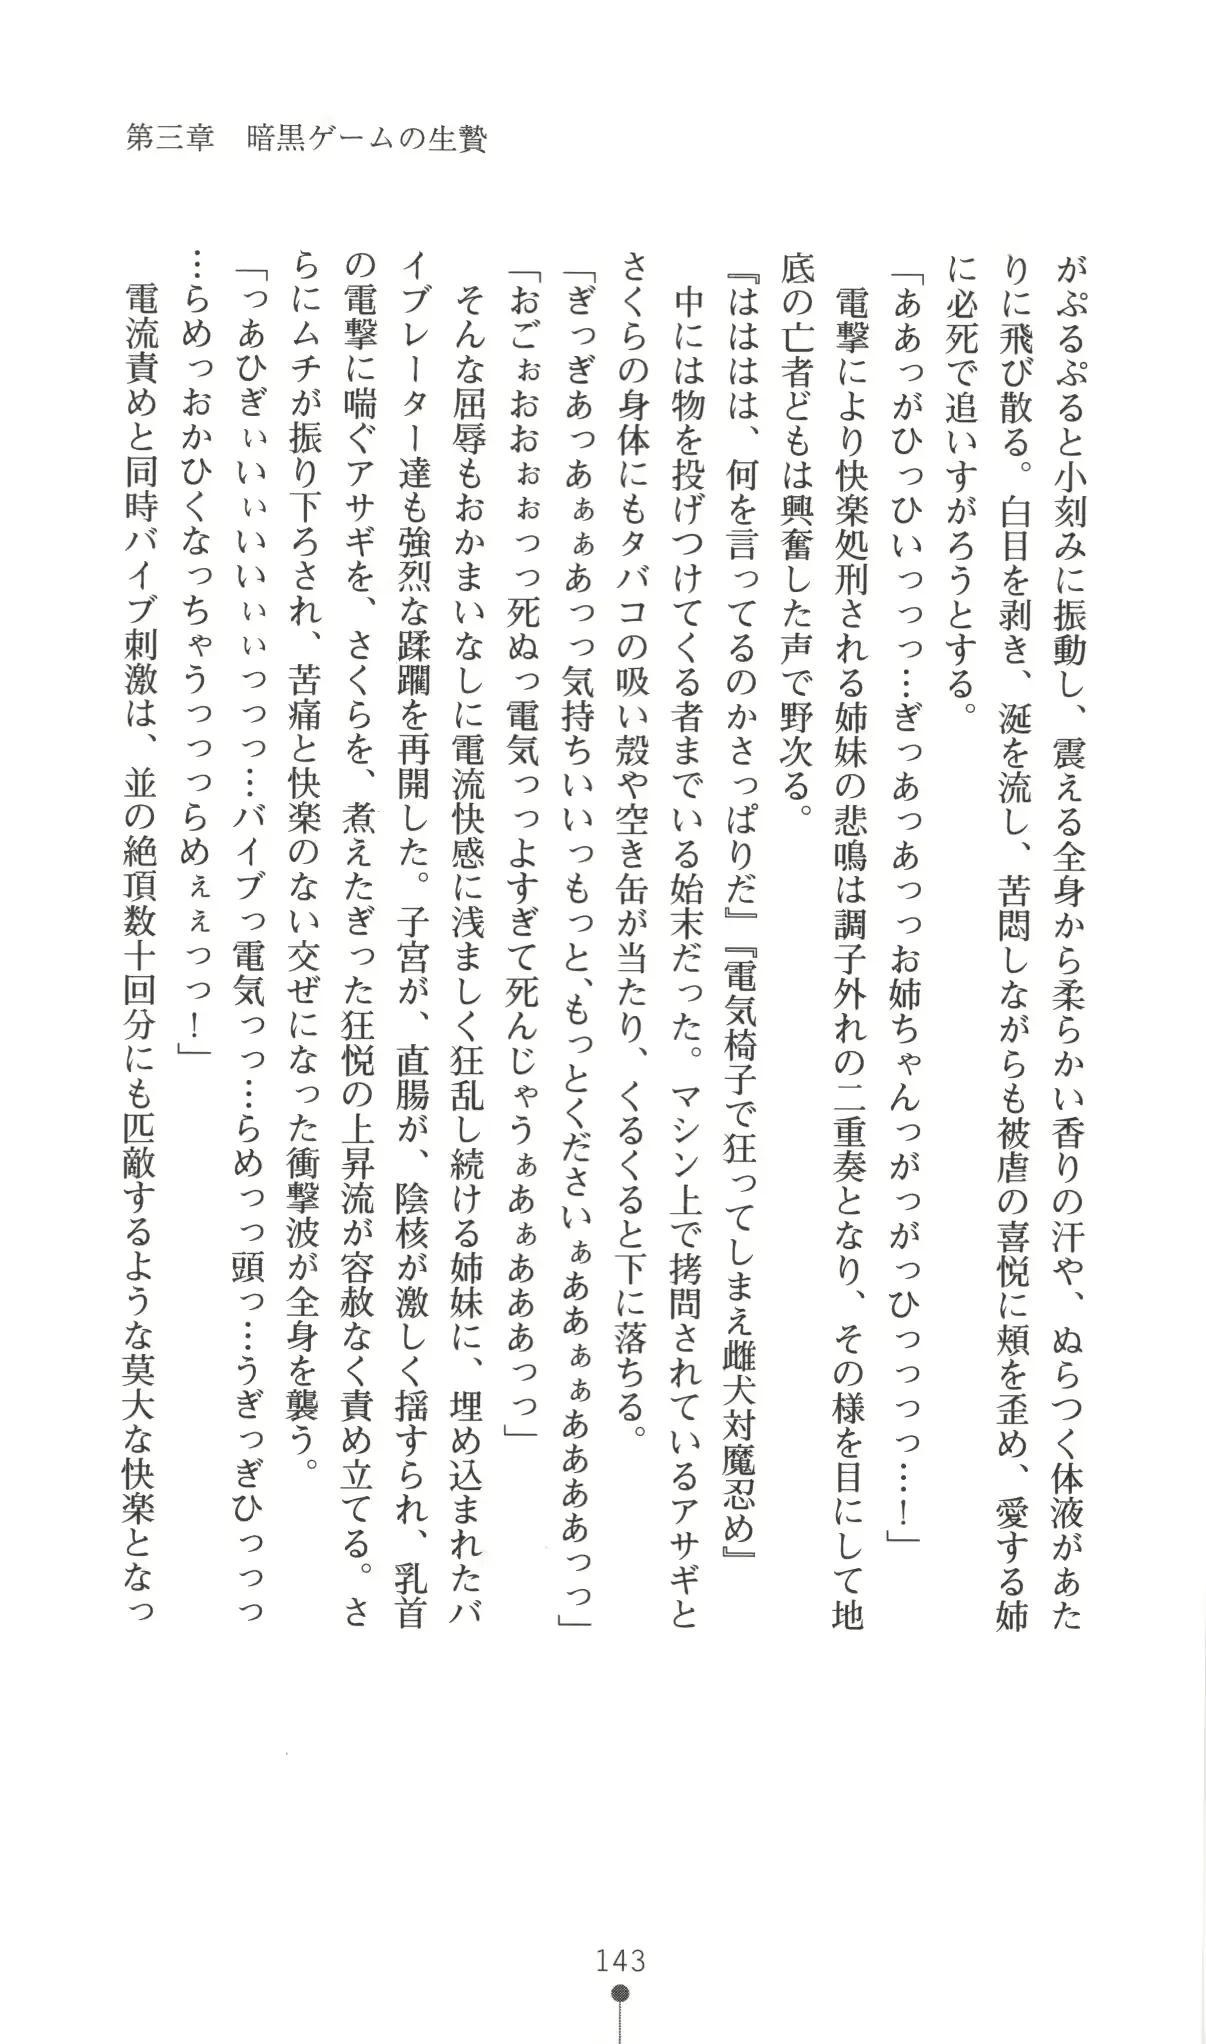 第三章　暗黒ゲームの生贄
がぷるぷると小刻みに振動し、震える全身から柔らかい香りの汗や、ぬらつく体液があた
りに飛び散る。白目を剥き、涎を流し、苦悶しながらも被虐の喜悦に頬を歪め、愛する姉
に必死で追いすがろうとする。
「ああっがひっひいっっっ…ぎっあっあっっお姉ちゃんっがっがっひっっっっ…！」
　電撃により快楽処刑される姉妹の悲鳴は調子外れの二重奏となり、その様を目にして地
底の亡者どもは興奮した声で野次る。
『はははは、何を言ってるのかさっぱりだ』『電気椅子で狂ってしまえ雌犬対魔忍め』
　中には物を投げつけてくる者までいる始末だった。マシン上で拷問されているアサギと
さくらの身体にもタバコの吸い殻や空き缶が当たり、くるくると下に落ちる。
「ぎっぎあっあぁぁあっっ気持ちいいっもっと、もっとくださいぁああぁぁああああっっ」
「おごぉおおぉぉっっ死ぬっ電気っっよすぎて死んじゃうぁあぁあああっっ」
　そんな屈辱もおかまいなしに電流快感に浅ましく狂乱し続ける姉妹に、埋め込まれたバ
イブレーター達も強烈な蹂躙を再開した。子宮が、直腸が、陰核が激しく揺すられ、乳首
の電撃に喘ぐアサギを、さくらを、煮えたぎった狂悦の上昇流が容赦なく責め立てる。さ
らにムチが振り下ろされ、苦痛と快楽のない交ぜになった衝撃波が全身を襲う。
「っあひぎぃいぃいいぃぃっっっ…バイブっ電気っっ…らめっっ頭っ…うぎっぎひっっっ
…らめっおかひくなっちゃうっっっらめぇぇっっ！」
　電流責めと同時バイブ刺激は、並の絶頂数十回分にも匹敵するような莫大な快楽となっ
143